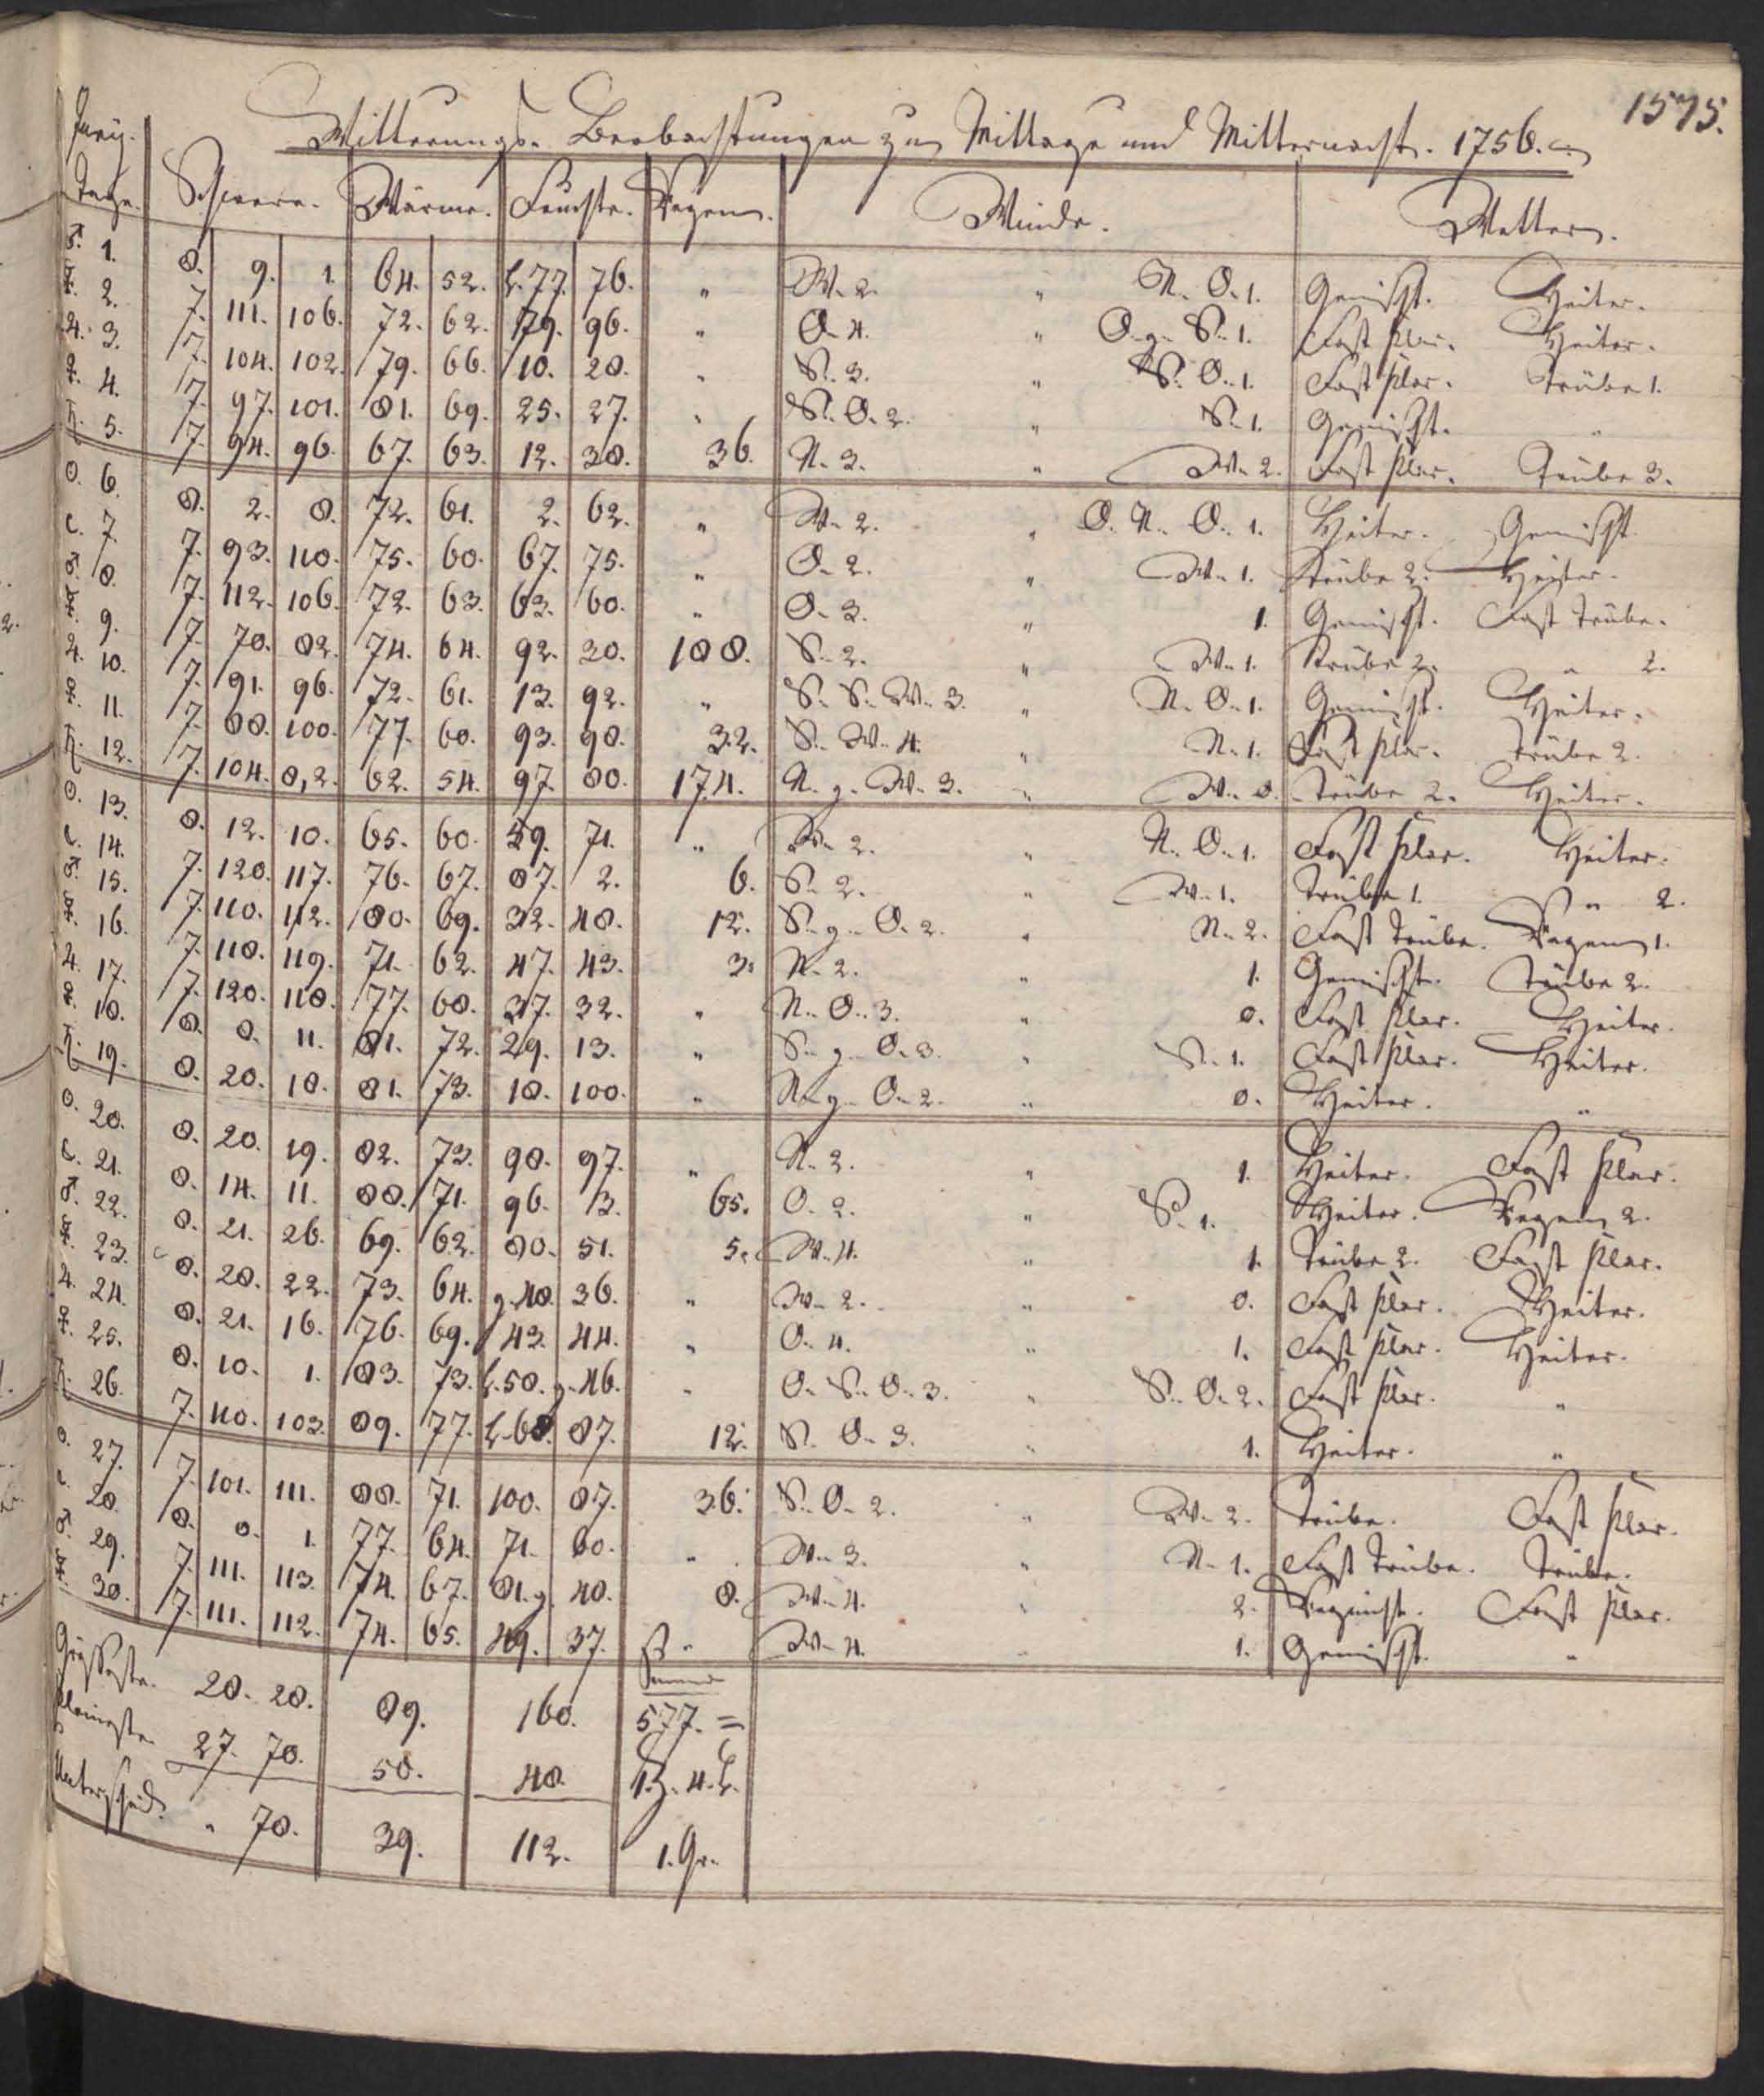 1575.
Witterungs-Beobachtungen zu Mittage und Mitternacht. 1756.
Junij.
Tage. Schwere. Wärme. Feuchte. Regen. Winde. Wetter.
♂. 1. 8. 9. 1. 64. 52. L. 77. 76. " W. 2. " N. O. 1. Gemischt. Heiter.
☿. 2. 7. 111. 106. 72. 62. 79. 96. " O. 4. " O. g. S. 1. Fast klar. Heiter.
♃. 3. 7. 104. 102. 79. 66. 10. 28. " S. 3. " S. O. 1. Fast klar. Trübe 1.
♀. 4. 7. 97. 101. 81. 69. 25. 27. " S. O. 2. " S. 1. Gemischt. "
♄. 5. 7. 94. 96. 67. 63. 12. 38. 36. N. 3. " W. 2. Fast klar. Trübe 3.
☉. 6. 8. 2. 8. 72. 61. 2. 62. " W. 2. " O. N. O. 1. Heiter. Gemischt.
☾. 7. 7. 93. 110. 75. 60. 67. 75. " O. 2. " W. 1. Trübe 2. Heiter.
♂. 8. 7. 112. 106. 72. 63. 63. 60. " O. 3. " 1. Gemischt. Fast Trübe.
☿. 9. 7. 78. 82. 74. 64. 92. 20. 188. S. 2. " W. 1. Trübe 2. " 2.
♃. 10. 7. 91. 96. 72. 61. 13. 92. " S. S. W. 3. " N. O. 1. Gemischt. Heiter.
♀. 11. 7. 88. 100. 77. 60. 93. 98. 32. S. W. 4. " N. 1. Fast klar. Trübe 2.
♄. 12. 7. 104. 8,2. 62. 54. 97. 80. 174. N. g. W. 3. " W. 0. Trübe 2. Heiter.
☉. 13. 8. 12. 10. 65. 60. 59. 71. " W. 2. " N. O. 1. Fast klar. Heiter.
☾. 14. 7. 120. 117. 76. 67. 87. 2. 6. S. 2. " W. 1. Trübe 1. " 2.
♂. 15. 7. 110. 112. 80. 69. 32. 48. 12. S. g. O. 2. " N. 2. Fast Trübe. Regen 1.
☿. 16. 7. 118. 119. 71. 62. 47. 43. 3. N. 2. " 1. Gemischt. Trübe 2.
♃. 17. 7. 120. 118. 77. 68. 37. 32. " N. O. 3. " 0. Fast klar. Heiter.
♀. 18. 8. 8. 11. 81. 72. 29. 13. " S. g. O. 3. " S. 1. Fast klar. Heiter.
♄. 19. 8. 20. 18. 81. 73. 18. 100. " N. g. O. 2. " 0. Heiter. "
☉. 20. 8. 20. 19. 82. 73. 98. 97. " N. 2. " 1. Heiter. Fast klar.
☾. 21. 8. 14. 11. 80. 71. 96. 3. 65. O. 2. " S. 1. Heiter. Regen 2.
♂. 22. 8. 21. 26. 69. 62. 80. 51. 5. W. 4. " 1. Trübe 2. Fast klar.
☿. 23. 8. 28. 22. 73. 64. g. 48. 36. " W. 2. " 0. Fast klar. Heiter.
♃. 24. 8. 21. 16. 76. 69. 43. 44. " O. 4. " 1. Fast klar. Heiter.
♀. 25. 8. 10. 1. 83. 73. L. 50. g. 46. " O. S. O. 3. " S. O. 2. Fast klar. "
♄. 26. 7. 110. 103. 89. 77. L. 68. 87. 12. S. O. 3. " 1. Heiter. "
☉. 27. 7. 101. 111. 80. 71. 100. 87. 36. S. O. 2. " W. 2. Trübe. Fast klar.
☾. 28. 8. 0. 1. 77. 64. 71. 60. " W. 3. " N. 1. Fast Trübe. Trübe.
♂. 29. 7. 111. 113. 74. 67. 81. g. 48. 8. W. 4. " 2. Regnicht. Fast klar.
☿. 30. 7. 111. 112. 74. 65. 49. 37. " W. 4. " 1. Gemischt. "
Summa
Grösseste. 28. 28. 89. 160. 577. =
Kleineste. 27. 78. 50. 48. 1. Z. 4. L.
Unterscheid. " 70. 39. 112. 1. Gr.